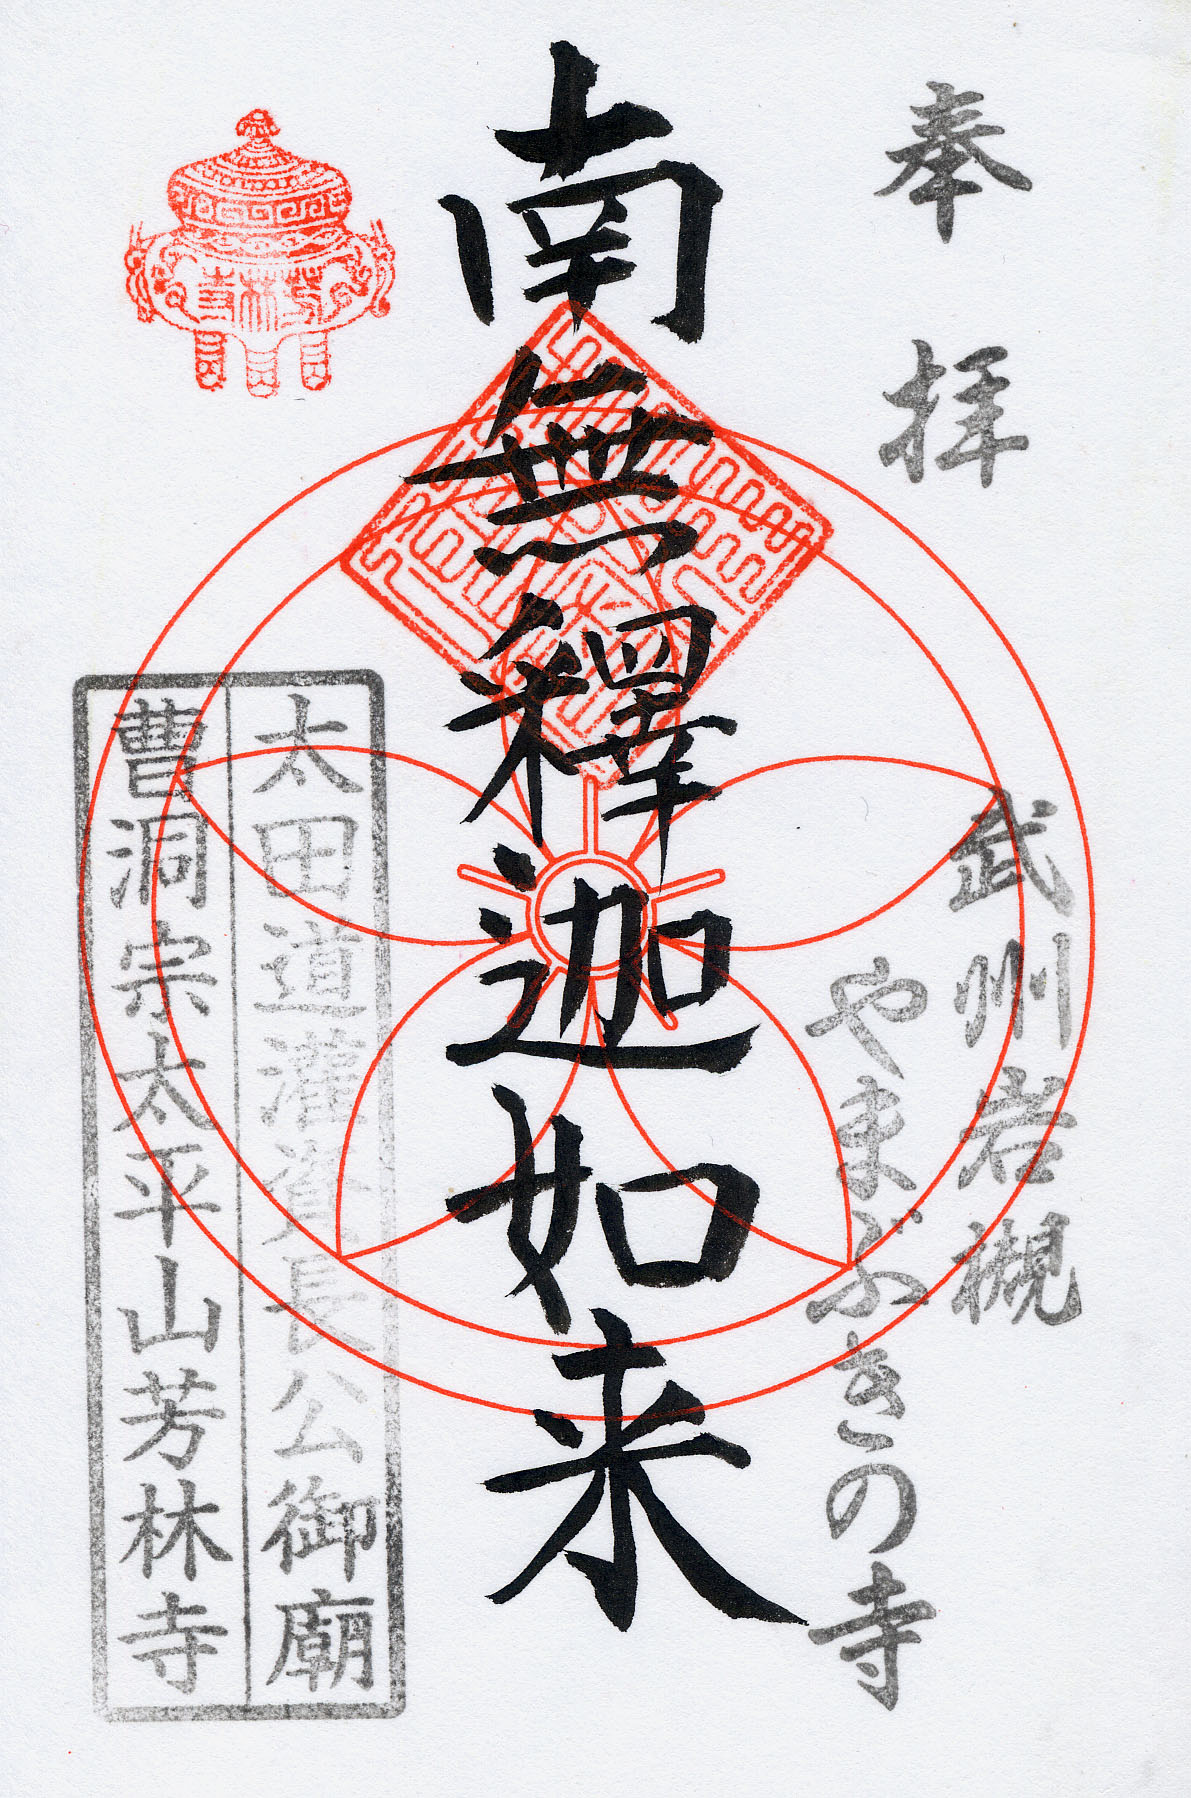 奉拝
武州岩槻
やまぶきの寺
南無釋迦如来
太田道灌資長公御廟
曹洞宗太平山芳林寺
芳林寺